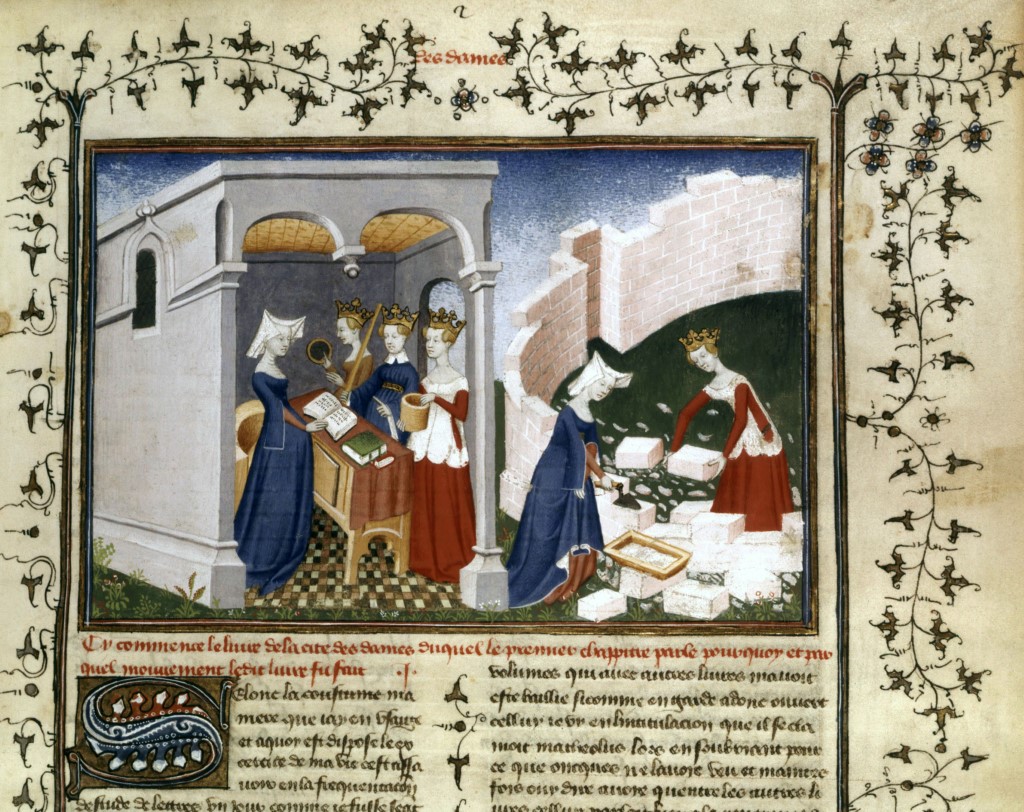 des dames
Cy commence le livre de la cite des dames duquel le premier chappitre parle pourquoy et par
quel mouvement ledit livre fu fait .I.
Selonc la coustume que
et a quoy est dispose le
cercice de ma vie cest assa
voir en la frequentacion
destude de lettres un jour comme je fusse seat
volumes qui avec autres livres mavoit
este baillie si comme en garde adonc ouvert
cellui je vy en lintitulacion que il se cla
moit matheolus lors en soubriant pour
ce que oncques ne lavoie veu et maintes
fois ouy dire avoie quentre les autres li
vres cellui